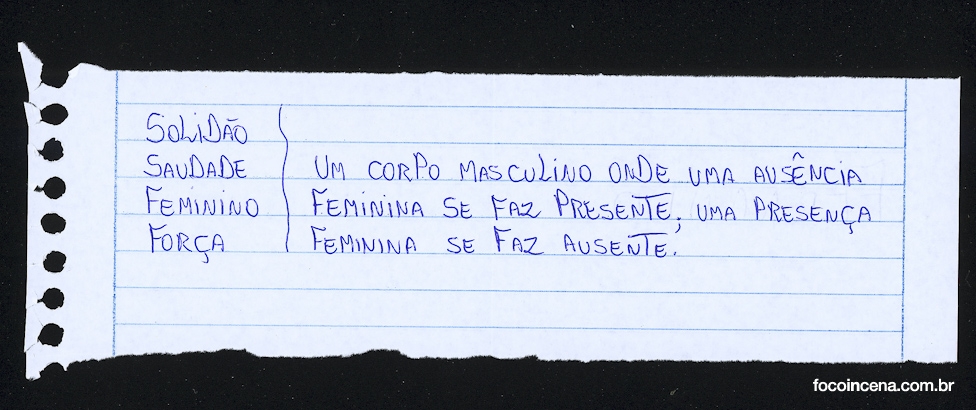 SOLIDÃO
SAUDADE
FEMININO
FORÇA
UM CORPO MASCULINO ONDE UMA AUSÊNCIA
FEMININA SE FAZ PRESENTE, UMA PRESENÇA
FEMININA SE FAZ AUSENTE.
focoincena.com.br